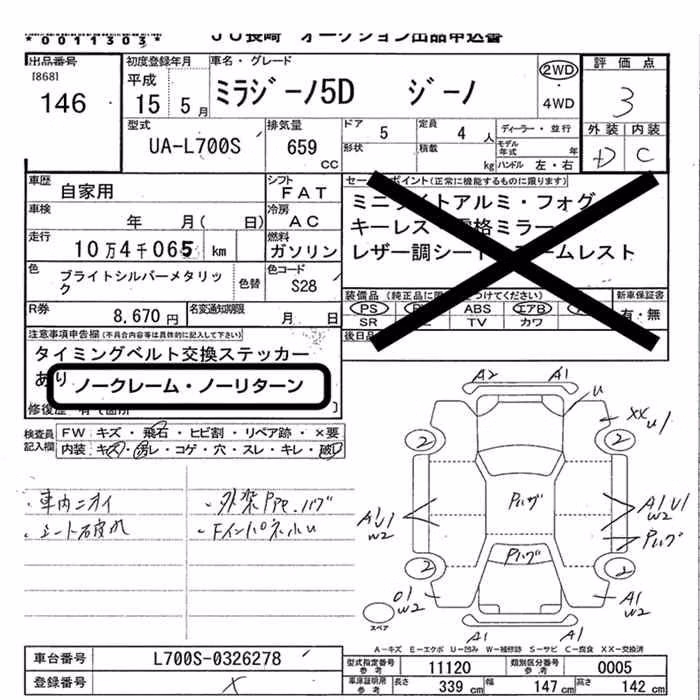 *0011303* JU長崎 オークション出品申込書
出品番号 [868] 146
初度登録年月 平成 15 5月
車名・グレード ミラジーノ5D ジーノ
2WD ・ 4WD
評価点 3
外装 D 内装 C
型式 UA-L700S
排気量 659 CC
ドア 5 定員 4人
形状 積載 kg
ディーラー・並行
モデル年式 年
ハンドル 左・右
車歴 自家用
シフト FAT
車検 年 月( 日)
冷房 AC
走行 10万4千065 km
燃料 ガソリン
色 ブライトシルバーメタリック
色替
色コード S28
R券 8,670円
名変通知期限 月 日
セールスポイント(正常に機能するものに限ります)
ミニライトアルミ・フォグ
キーレス・電格ミラー
レザー調シート・アームレスト
装備品(純正品に限り○をつけてください) 新車保証書
PS ABS エアB 有・無
SR TV カワ
後日品
注意事項申告欄(不具合内容等は具体的に記入して下さい)
タイミングベルト交換ステッカー
あり ノークレーム・ノーリターン
修復歴 有(箇所 )
検査員記入欄 FW キズ・飛石・ヒビ割・リペア跡・×要
内装 キズ・汚レ・コゲ・穴・スレ・キレ・破レ
・車内ニオイ
・シート破れ
・外装 ハゲ
・Fインパネ小U
A2 A1
U
XX
U1
2 2
A1 U1 W2
Pハゲ
A1 U1 W2
Pハゲ
Pハゲ
2 2
W2
A1 W2
スペア
A1 A1
A-キズ E-エクボ U-凹み W-補修跡 S-サビ C-腐食 XX-交換済
車台番号 L700S-0326278
型式指定番号 参考 11120 類別区分番号 参考 0005
登録番号
車庫証明用 参考 長さ 339 cm 幅 147 cm 高さ 142 cm